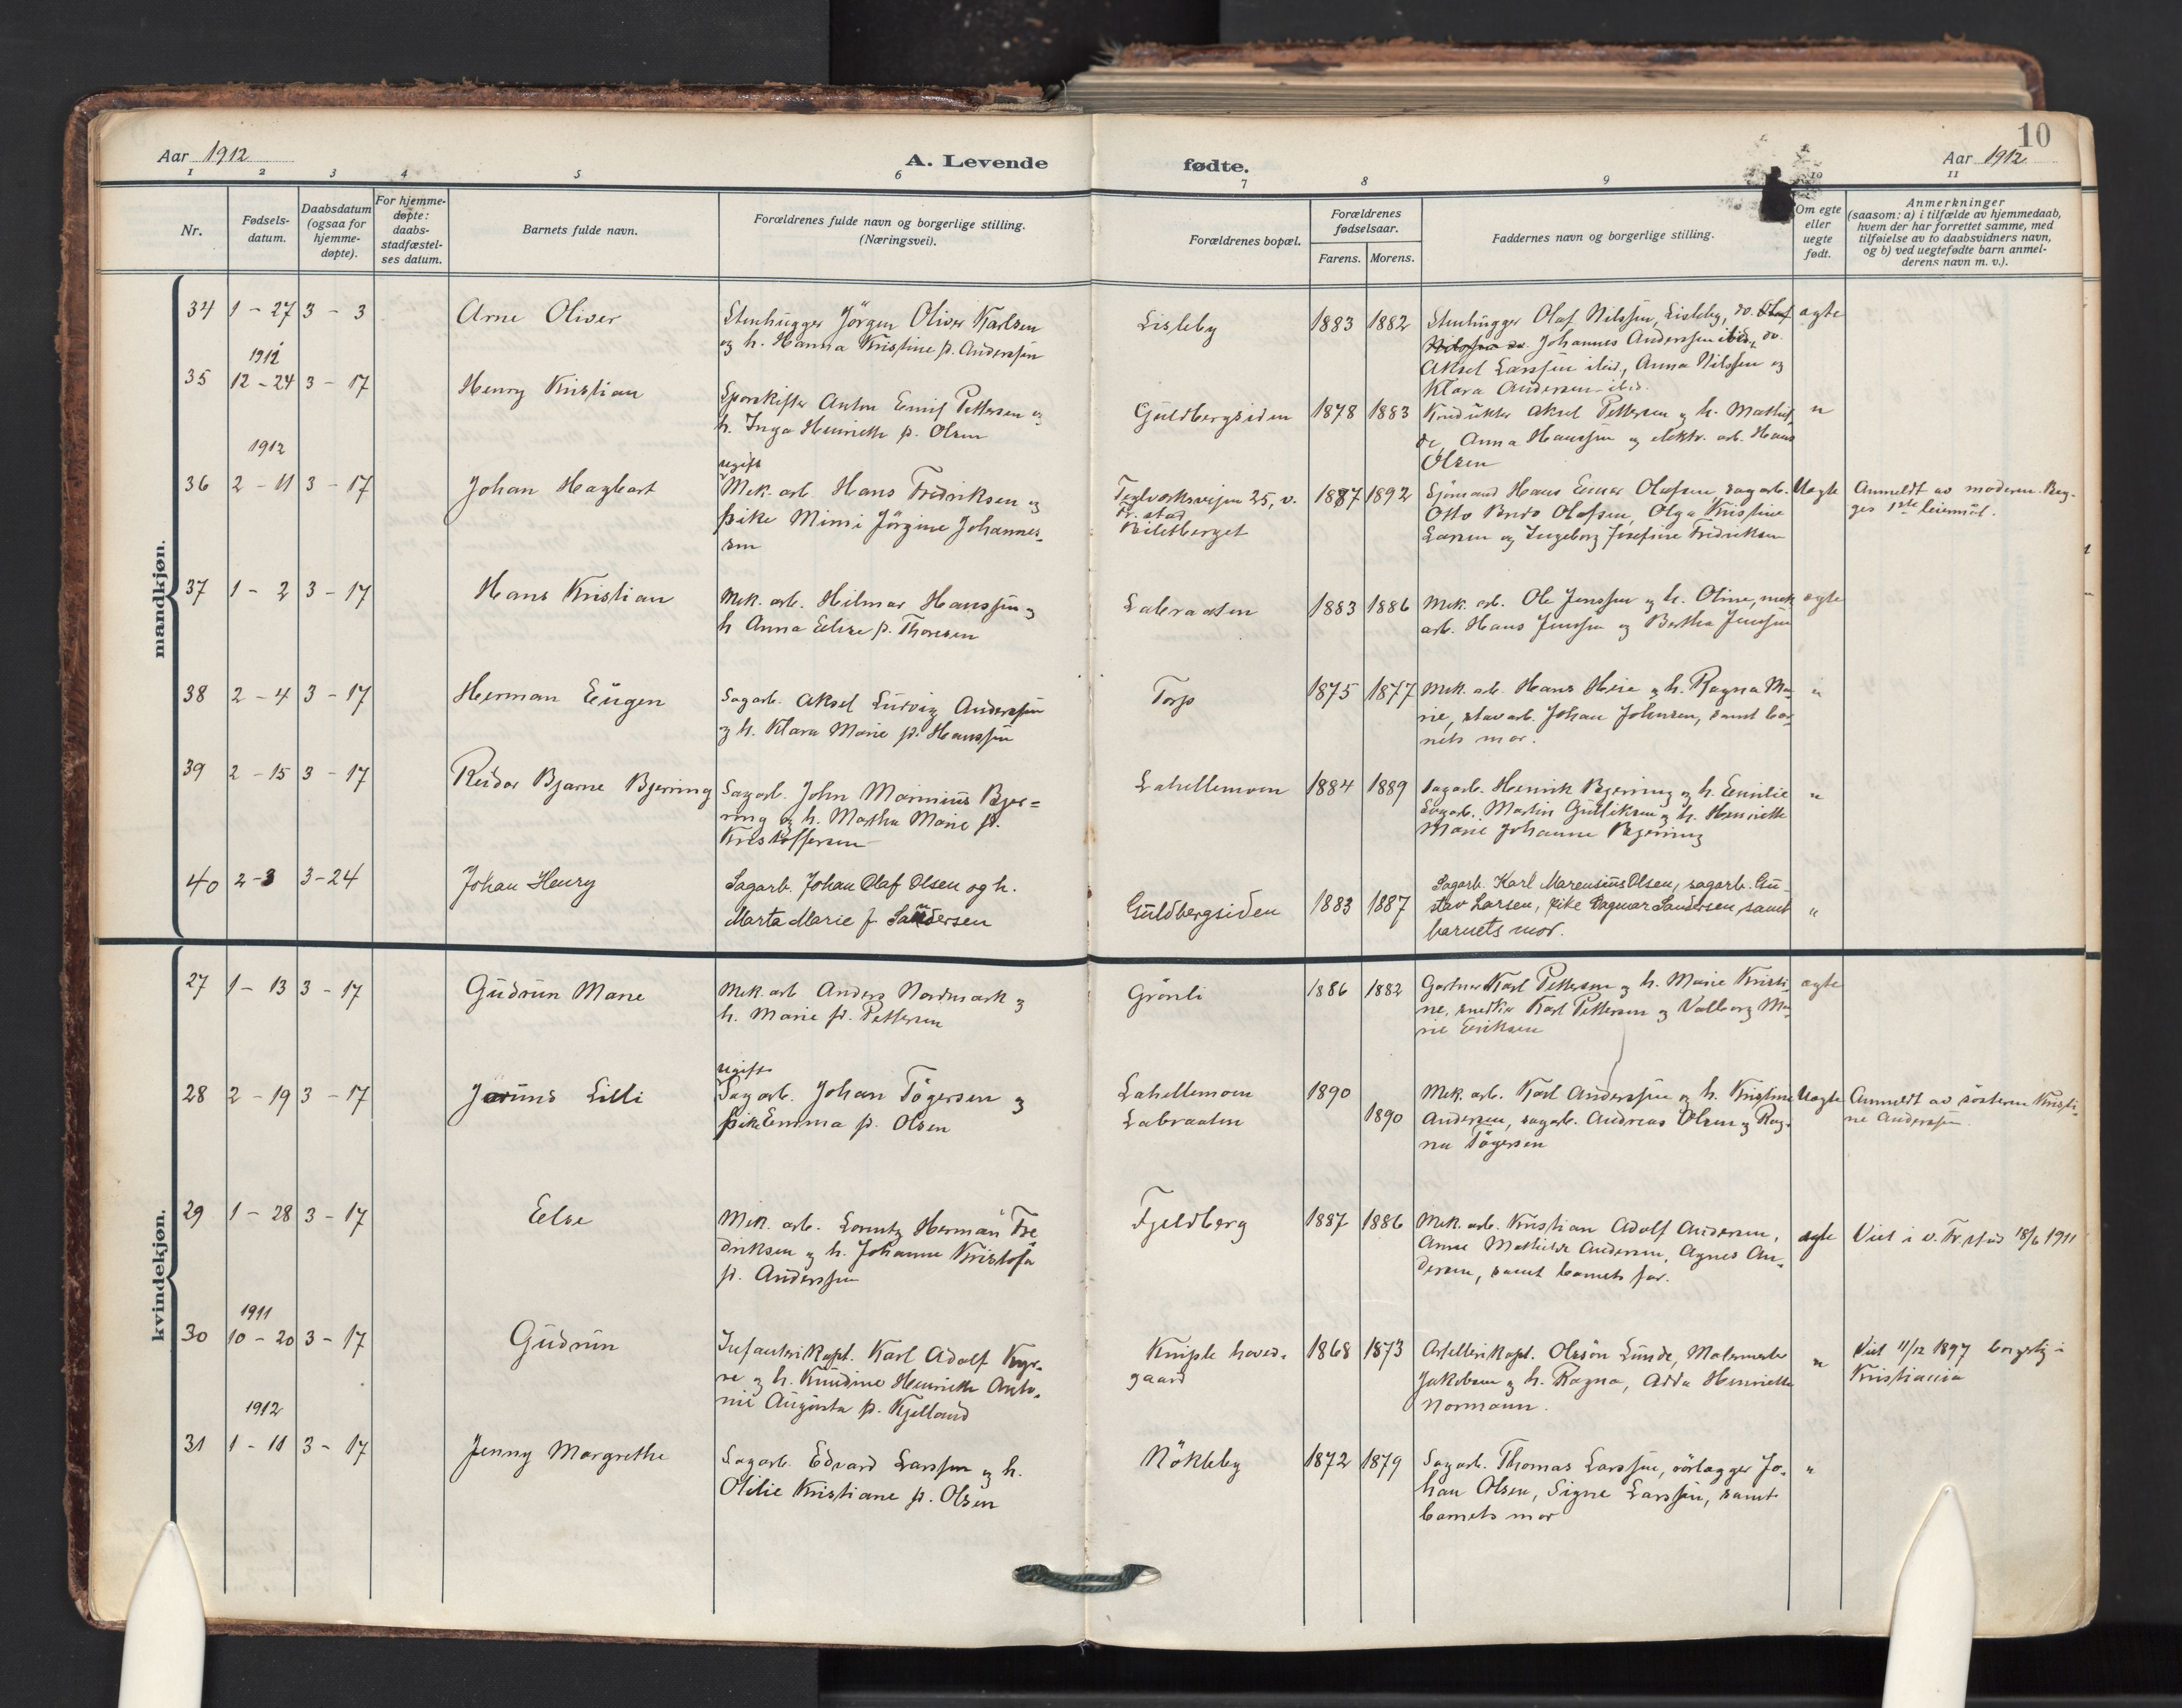 10
Aar 1912
A. Levende
fødte.
Aar 1912
1 2 3 4 5 6 7 8 9 10 11
Nr.
Fødsels-
datum.
Daabsdatum
(ogsaa for
hjemme-
døpte).
For hjemme-
døpte:
daabs-
stadfæstel-
ses datum.
Barnets fulde navn.
Forældrenes fulde navn og borgerlige stilling.
(Næringsvei).
Forældrenes bopæl.
Forældrenes
fødselsaar.
Farens. Morens.
Faddernes navn og borgerlige stilling.
Om egte
eller
uegte
født.
Anmerkninger
(saasom: a) i tilfælde av hjemmedaab,
hvem der har forrettet samme, med
tilføielse av to daabsvidners navn,
og b) ved uegtefødte barn anmel-
derens navn m. v.).
mandkjøn.
34 1 - 27 3 - 3 Arne Oliver
Stenhugger Jörgen Oliver Karlsen
og h. Hanna Kristine f. Anderssen
Lisleby 1883 1882
Stenhugger Olaf Nilssen, Lisleby, do. Olaf
Nilssen do. Johannes Anderssen ibid, do.
Aksel Larssen ibid, Anna Nilssen og
Klara Andersen ibid.
egte
1911
35 12 - 24 3 - 17 Henry Kristian
Sporskifter Anton Emil Pettersen og
h. Inga Henriette f. Olsen
Guldbergsiden 1878 1883
Konduktör Aksel Pettersen og h. Mathil-
de, Anna Hanssen og elektr. arb. Hans
Olsen
"
1912
36 2 - 11 3 - 17 Johan Hagbart
ugift
Mek. arb. Hans Fredriksen og
pike Mimi Jörgine Johannes-
sen
Teglverksveien 25, v.
Fr.stad
1887 1892
Sjömand Hans Einar Olafsen, sagarb.
Otto Olafsen, Olga Kristine
Larsen og Ingeborg Josefine Fredriksen
Uegte
Anmeldt av moderen. Beg-
ges 1ste leiermål.
37 1 - 2 3 - 17 Hans Kristian
Mek. arb. Hilmar Hanssen og
h. Anna Elise f. Thoresen
Labraaten 1883 1886
Mek. arb. Ole Jenssen og h. Oline, mek
arb. Hans Jenssen og Bertha Jenssen
egte
38 2 - 4 3 - 17 Herman Eugen
Sagarb. Aksel Ludvig Anderssen
og h. Klara Marie f. Hanssen
Torp 1875 1877
Mek. arb. Hans Heie og h. Ragna Ma-
rie, stavarb. Johan Johnsen, samt bar-
nets mor.
"
39 2 - 15 3 - 17 Reidar Bjarne Bjerring
Sagarb. John Marinius Bjer=
ring og h. Martha Marie f.
Kristoffersen
Lahellemoen 1884 1889
Sagarb. Henrik Bjerring og h. Emilie
Sagarb. Martin Gulliksen og h. Henriette
Marie Johanne Bjerring
"
40 2-3 3-24 Johan Henry
Sagarb. Johan Olaf Olsen og h.
Marta Marie f. Sandersen
Guldbergsiden 1883 1887
Sagarb. Karl Marensius Olsen, sagarb. Gu-
stav Larsen, pike Dagmar Sandersen, samt
barnets mor.
"
kvindekjøn.
27 1 - 13 3 - 17 Gudrun Marie
Mek. arb Anders Nordmark og
h. Marie f. Pettersen
Grönli 1886 1882
Gartner Karl Pettersen og h. Marie Kristi-
ne, snedker Karl Pettersen og Valborg Ma-
rie Eriksen
egte
28 2 - 19 3 - 17 Jorund Lilli
ugift
Sagarb. Johan Tögersen og
pike Emma f. Olsen
Lahellemoen 1890
Labraaten 1890
Mek. arb. Karl Anderssen og h. Kristine
Andersen, sagarb. Andreas Olsen og Rag-
na Tögersen
Uegte
Anmeldt av sösteren Kristi-
ne Anderssen.
29 1 - 28 3 - 17 Else
Mek. arb. Lorentz Herman Fre
driksen og h. Johanne Kristofa
f. Anderssen
Fjeldberg 1887 1886
Mek. arb. Kristian Adolf Andersen,
Anna Mathilde Andersen, Agnes An-
dersen, samt barnets far.
egte
Viet i v. Fr.stad 18/6 1911
1911
30 10 - 20 3 - 17 Gudrun
Infanterikapt. Karl Adolf Kyr-
re og h. Knudine Henriette Anto-
nie Augusta f. Kjelland
Kniple hoved-
gaard
1868 1873
Artillerikapt. Olsön Lunde, Malermester
Jakobsen og h. Ragna, Adda Henriette
Normann.
"
Viet 11/12 1897 borgerlig i
Kristiania
1912
31 1 - 11 3 - 17 Jenny Margrethe
Sagarb. Edvard Larssen og h.
Otilie Kristiane f. Olsen
Nökleby 1872 1879
Sagarb. Thomas Larssen, rörlægger Jo-
han Olsen, Signe Larssen, samt
barnets mor
"